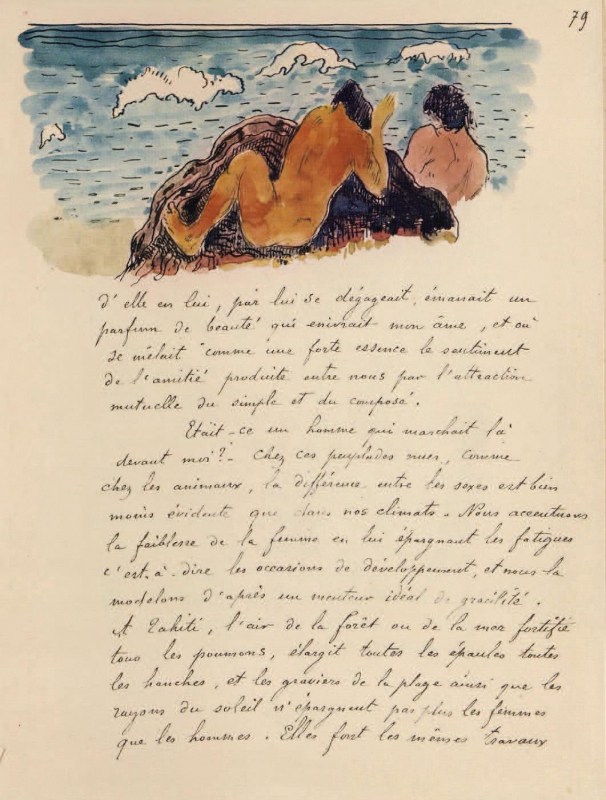 79
d'elle en lui, par lui se dégageait, émanait un
parfum de beauté qui enivrait mon âme, et où
se mêlait comme une forte essence le sentiment
de l'amitié produite entre nous par l'attraction
mutuelle du simple et du composé.
Etait-ce un homme qui marchait là
devant moi? - Chez ces peuplades nues, comme
chez les animaux, la différence entre les sexes est bien
moins évidente que dans nos climats. Nous accentuons
la faiblesse de la femme en lui épargnant les fatigues
c'est-à-dire les occasions de développement, et nous la
modelons d'après un menteur idéal de gracilité.
A Tahiti, l'air de la forêt ou de la mer fortifie
tous les poumons, élargit toutes les epaules toutes
les hanches, et les graviers de la plage ainsi que les
rayons du soleil n'épargnent pas plus les femmes
que les hommes. Elles font les mêmes travaux